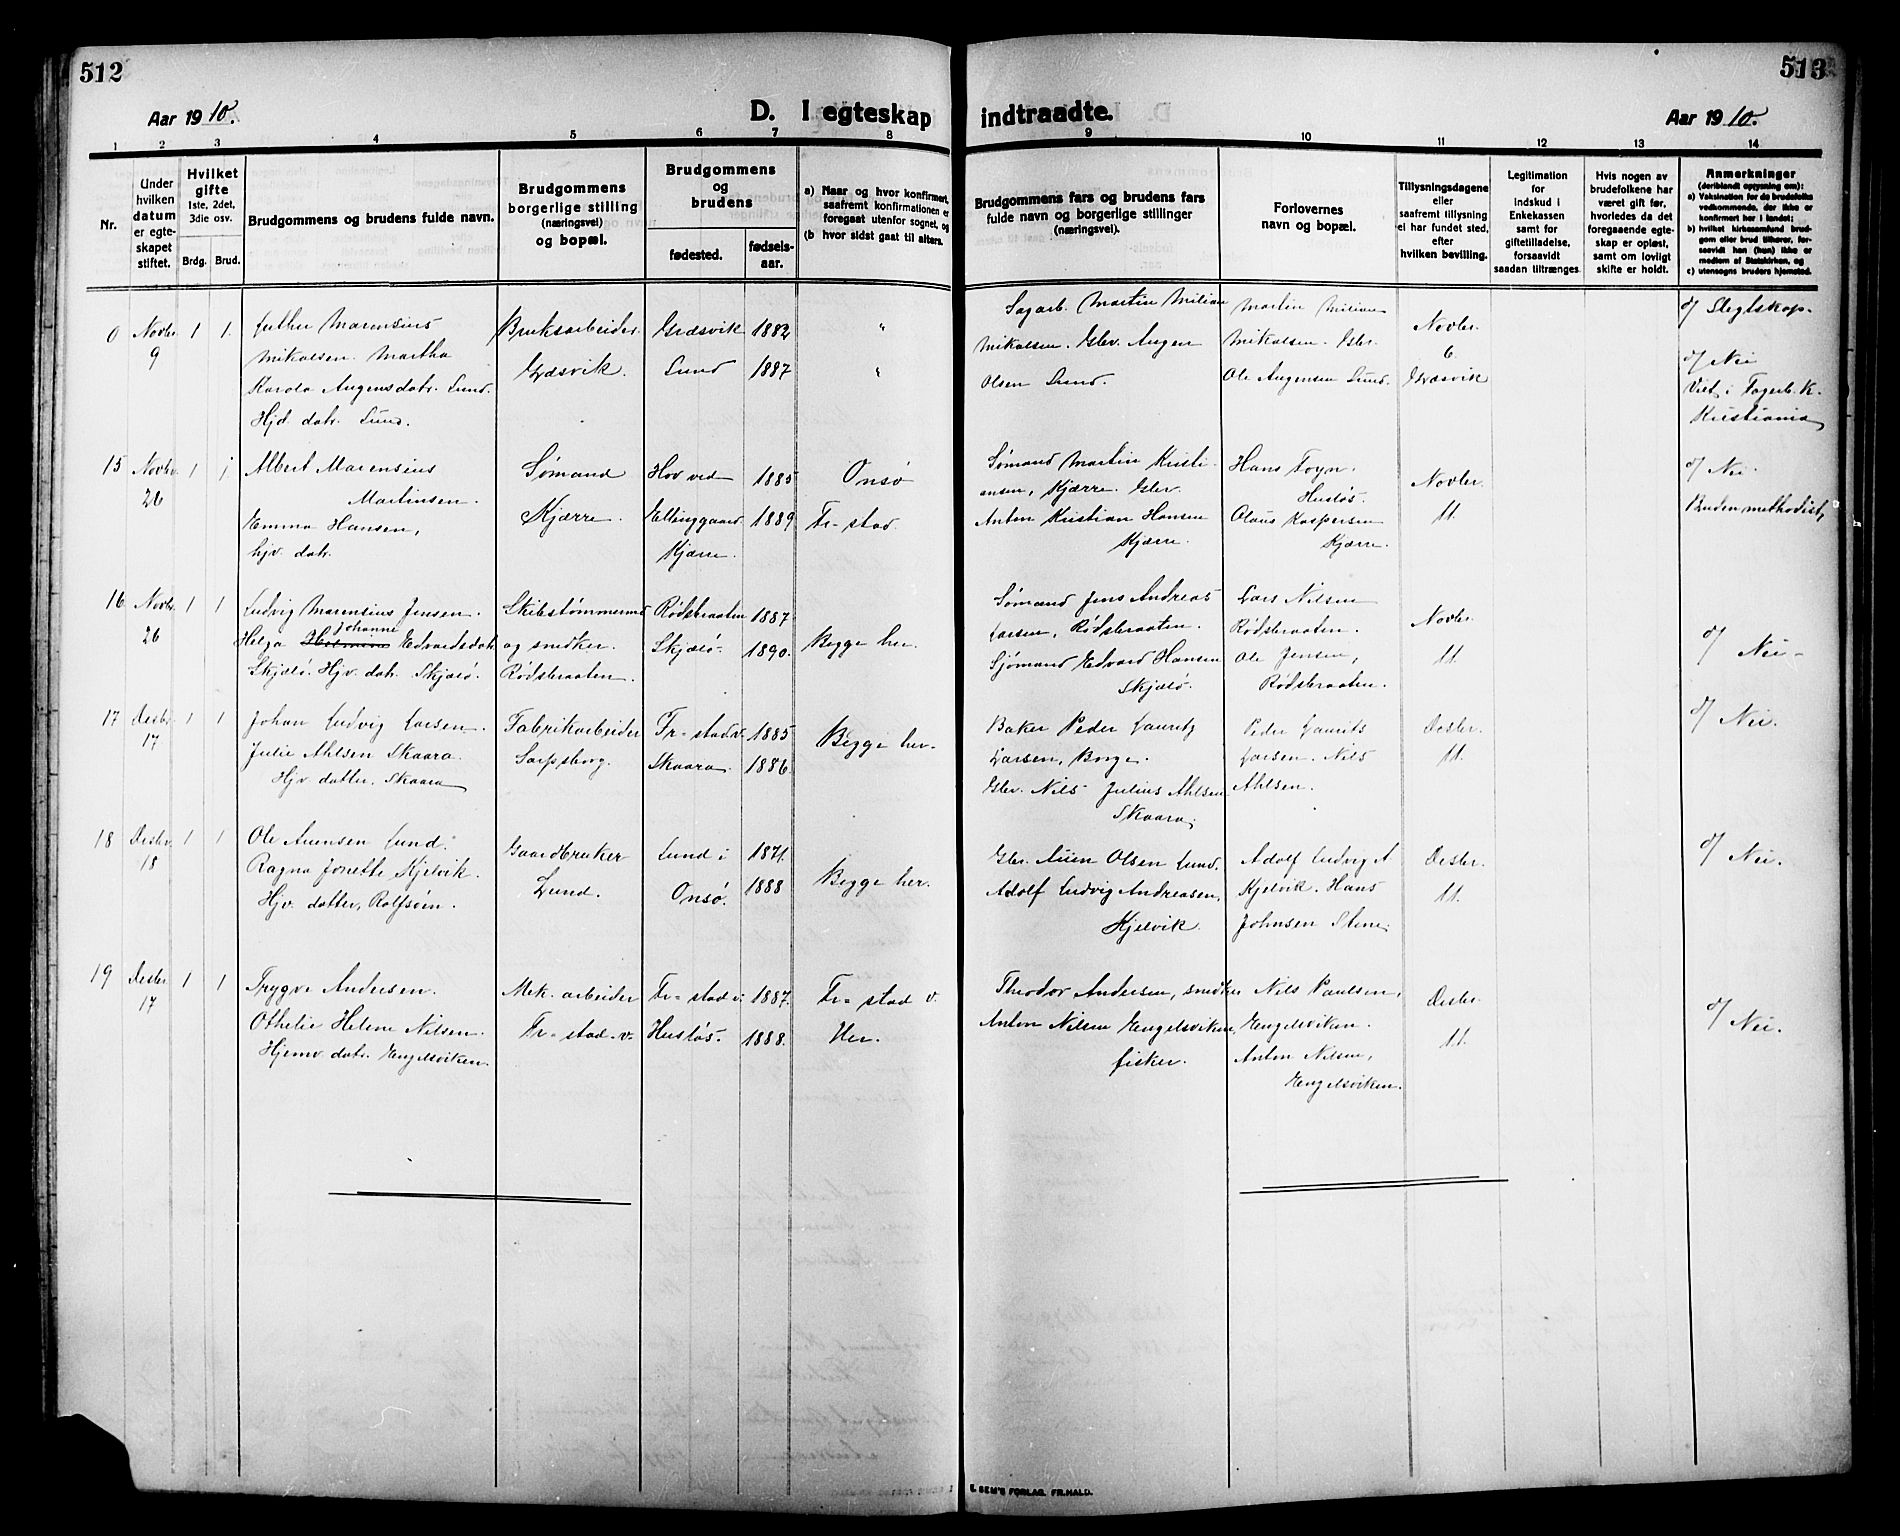 512
513
Aar 1910.
D. I egteskap indtraadte.
Aar 1910.
1 2 3 4 5 6 7 8 9 10 11 12 13 14
Nr.
Under hvilken datum er egteskapet stiftet.
Hvilket gifte
1ste, 2det, 3die osv.
Brdg. Brud.
Brudgommens og brudens fulde navn.
Brudgommens borgerlige stilling (næringsvei) og bopæl.
Brudgommens og brudens
fødested.
fødselsaar.
a) Naar og hvor konfirmert, saafremt konfirmationen er foregaat utenfor sognet, og
(b hvor sidst gaat til alters.
Brudgommens fars og brudens fars fulde navn og borgerlige stillinger (næringsvei).
Forlovernes navn og bopæl.
Tillysningsdagene eller saafremt tillysning ei har fundet sted, efter hvilken bevilling.
Legitimation for indskud i Enkekassen samt for giftetilladelse, forsaavidt saadan tiltrænges
Hvis nogen av brudefolkene har været gift før, hvorledes da det foregaaende egteskap er opløst, samt om lovligt skifte er holdt.
Anmerkninger
(deriblandt oplysning om):
a) Vaksination for de brudefolks vedkommende, der ikke er konfirmert her i landet;
b) hvilket kirkesamfund brudgom eller brud tilhører, forsaavidt han (hun) ikke er medlem af Statskirken, og
c) utensogns bruders hjemsted.
0 Novbr. 9 1 1.
Luther Marensius
Mikalsen. Martha
Karola Augensdatr. Lund.
Hjd. datr. Lund.
Bruksarbeider
Græsvik.
Græsvik 1882 "
Lund 1887 "
Sagarb. Martin Milian
Mikalsen. Glev. Augen
Olsen Lund.
Martin Milian
Mikalsen. Glr.
Ole Augensen Lund.
Novbr.
6.
Græsvik
o/ Slegtskap.
o/ Nei
Viet i Fagerb. K.
Kristiania
15 Novbr. 26 1 1
Albert Marensius
Martinsen.
Emma Hansen,
hjv. datr.
Sømand
Kjærre.
Hov ved 1885 Onsø
Elinggaard 1889 Fr=stad
Kjærre.
Sømand Martin Kristiansen, Kjærre. Glev.
Anton Kristian Hansen
Kjærre.
Hans Foyn.
Hustøs.
Olaus Kaspersen
Kjærre.
Novbr.
11.
o/ Nei.
Bruden methodist,
16 Novbr. 26 1 1
Ludvig Marensius Jensen.
Johanne
Helga Edvardsdatr
Skjælø. Hjv. datr. Skjælø.
Skibstømmermd
og snedker.
Rødsbraaten.
Rødsbraaten 1887
Skjælø. 1890.
Begge her.
Sømand Jens Andreas
Larsen, Rødsbraaten.
Sjømand Edvard Hansen
Skjælø.
Lars Nilsen
Rødsbraaten.
Ole Jensen,
Rødsbraaten.
Novbr.
11.
o/ Nei-
17 Desbr. 17 1 1
Johan Ludvig Larsen.
Julie Ahlsen Skaara.
Hjv. datter, Skaara
Fabrikarbeider
Sarpsborg.
Fr=stad v. 1885
Skaara. 1886.
Begge her.
Baker Peder Lauritz
Larsen, Borge.
Glev. Nils Julius Ahlsen
Skaara.
Peder Laurits
Larsen. Nils
Ahlsen.
Desbr.
11.
o/ Nei.
18 Desbr. 18 1 1
Ole Auensen Lund.
Ragna Jonette Kjelvik.
Hjv. datter, Rolfsøen.
Gaardbruker
Lund.
Lund i 1871.
Onsø. 1888
Begge her.
Glev. Auen Olsen Lund.
Adolf Ludvig Andreasen,
Kjelvik.
Adolf Ludvig A
Kjelvik. Hans
Johnsen Stene.
Desbr.
11.
o/ Nei.
19 Desbr 17 1 1
Trygve Andersen.
Othelie Helene Nilsen.
Hjemv. datr. Engelsviken.
Mek. arbeider
Fr=stad. v.
Fr=stad v. 1887. Fr=stad v.
Hustøs. 1888. Her.
Theodor Andersen, snedker
Anton Nilsen Engelsviken,
fisker.
Nils Paulsen,
Engelsviken.
Anton Nilsen,
Engelsviken.
Desbr.
11.
o/ Nei.
E. SEM'S FORLAG. FR.HALD.